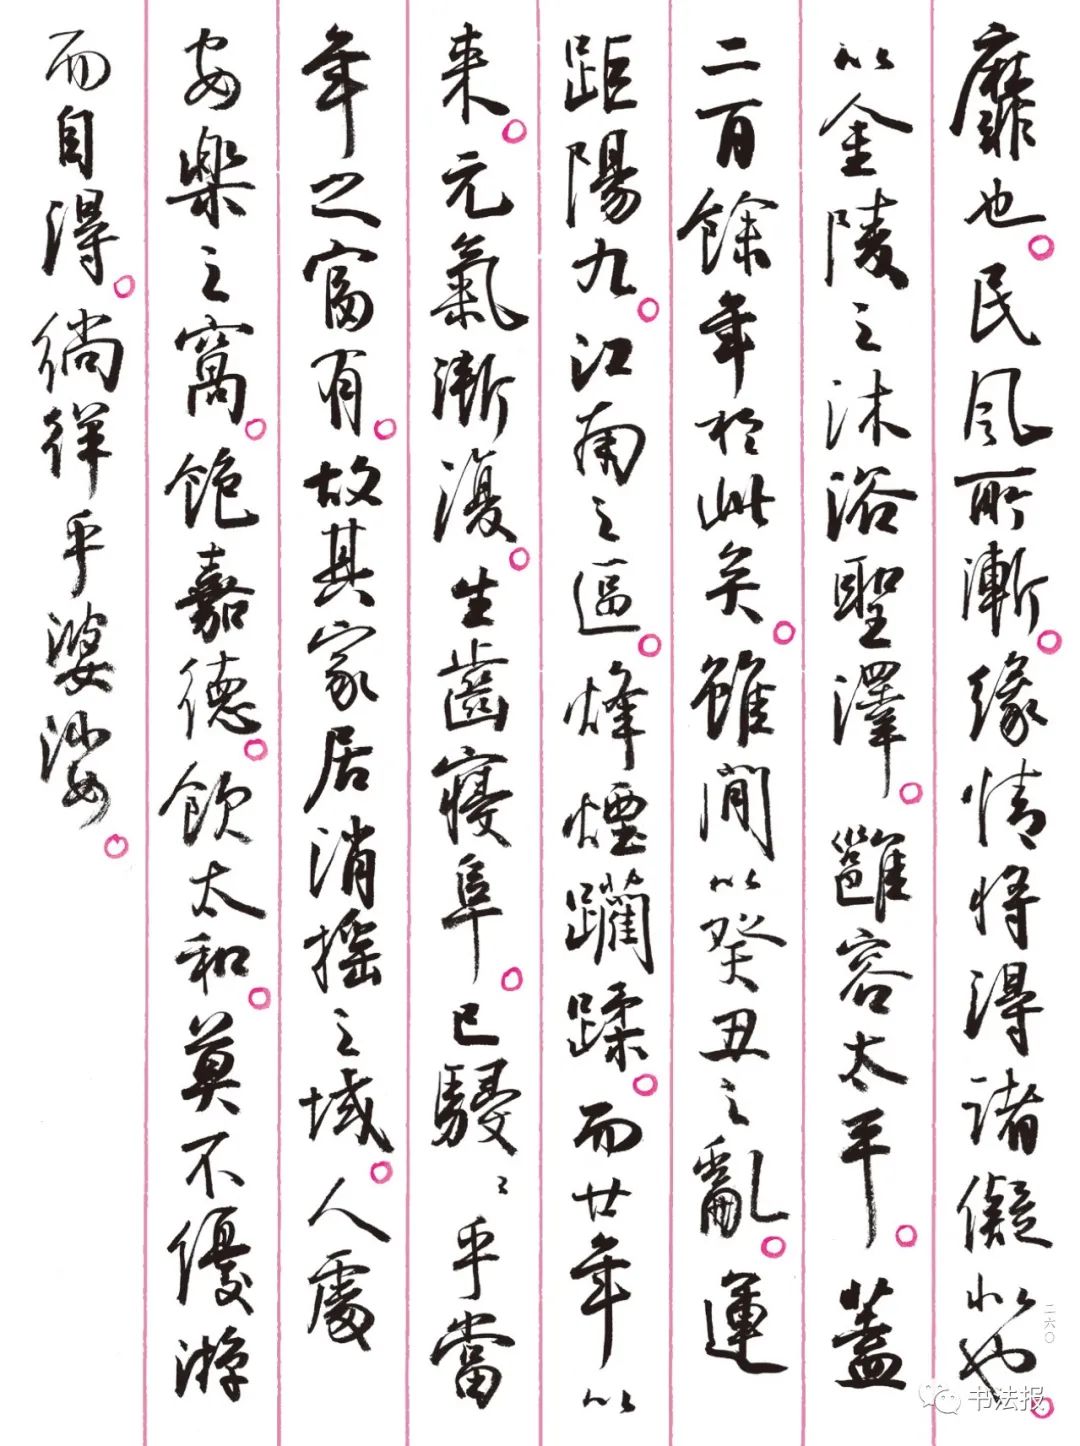 靡也。民風所漸。緣情將得諸儗似也。
以金陵之沐浴聖澤。雝容太平。蓋
二百餘年於此矣。雖間以癸丑之亂。運
距陽九。江南之區。烽煙躪蹂。而廿年以
來。元氣漸復。生齒寖阜。已駸〻乎當
年之富有。故其家居消摇之域。人處
安樂之窩。飽嘉德。飲太和。莫不優游
而自得。徜徉乎婆娑。
二六〇
书法报